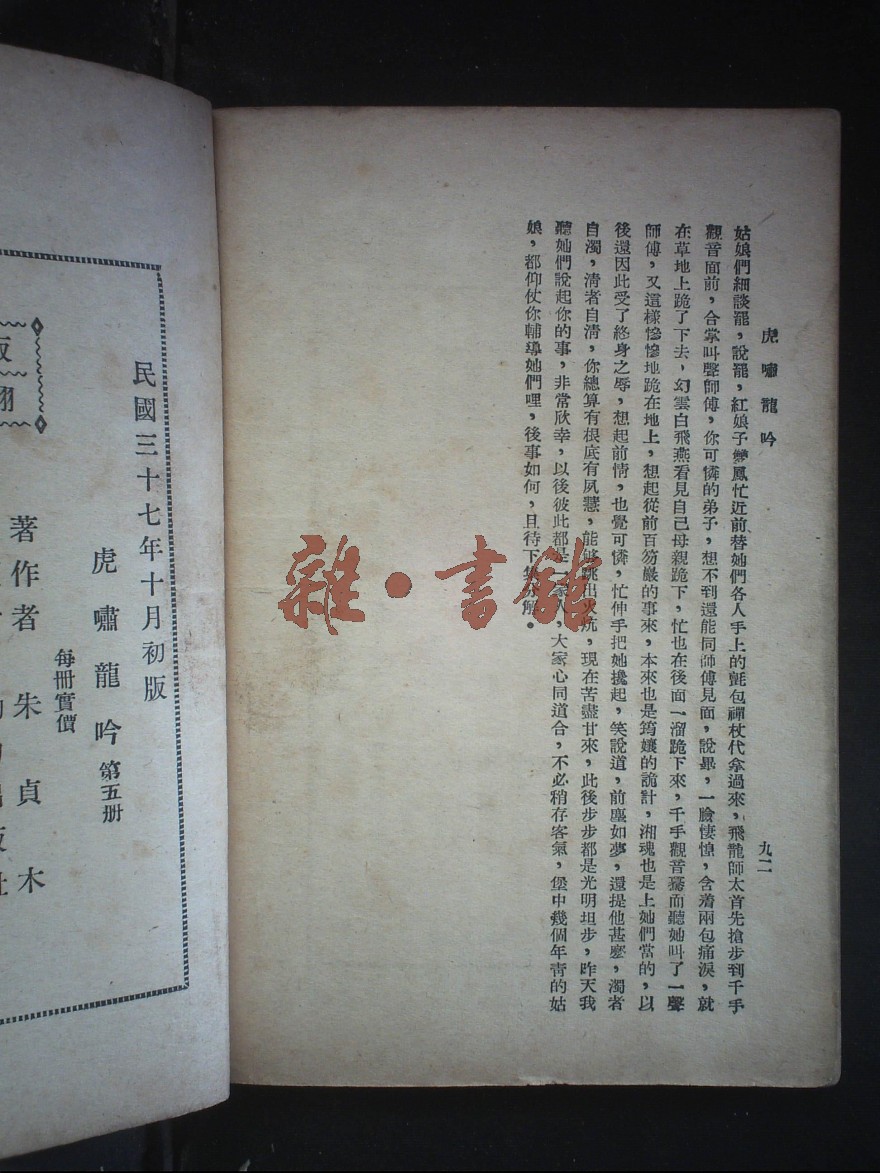 虎嘯龍吟
九二
姑娘們細談罷，說罷，紅娘子雙鳳忙近前替她們各人手上的氈包禪杖代拿過來，飛龍師太首先搶步到千手
觀音面前，合掌叫聲師傅，你可憐的弟子，想不到還能同師傅見面，說畢，一臉悽惶，含着兩包痛淚，就
在草地上跪了下去，幻雲白飛燕看見自己母親跪下，忙也在後面一溜跪下來，千手觀音驀而聽她叫了一聲
師傅，又這樣慘慘地跪在地上，想起從前百笏巖的事來，本來也是筠孃的詭計，湘魂也是上她們當的，以
後還因此受了終身之辱，想起前情，也覺可憐，忙伸手把她攙起，笑說道，前塵如夢，還提他甚麼，濁者
自濁，清者自清，你總算有根底有夙慧，能够跳出火炕，現在苦盡甘來，此後步步都是光明坦步，昨天我
聽她們說起你的事，非常欣幸，以後彼此都是一家人，大家心同道合，不必稍存客氣，堡中幾個年青的姑
娘，都仰仗你輔導她們哩，後事如何，且待下集分解。
雜·書館
民國三十七年十月初版
虎嘯龍吟 第五册
每冊實價
著作者 朱貞木
版
翻